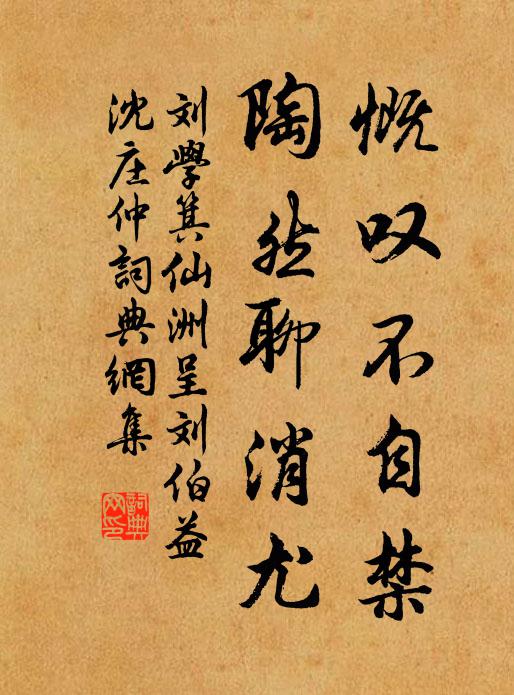 慨叹不自禁
陶然聊消尤
刘學箕仙洲呈刘伯益
沈庄仲詞典網集
詞典
网印